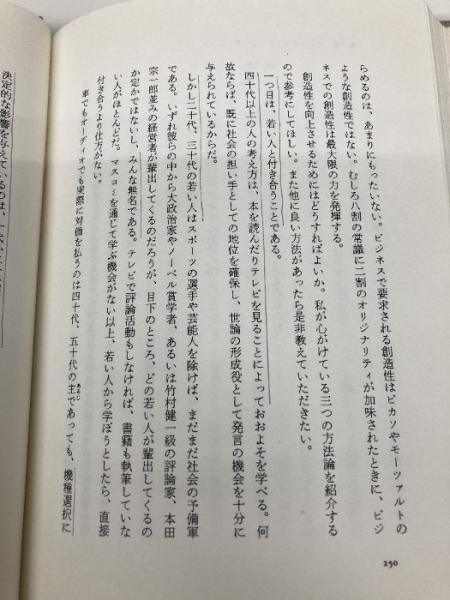 らめるのは、あまりにもったいない。ビジネスで要求される創造性はピカソやモーツァルトの
ような創造性ではない。むしろ八割の常識に二割のオリジナリティが加味されたときに、ビジ
ネスでの創造性は最大限の力を発揮する。
創造性を向上させるためにはどうすればよいか。私が心がけている三つの方法論を紹介する
ので参考にしてほしい。また他に良い方法があったら是非教えていただきたい。
一つ目は、若い人と付き合うことである。
四十代以上の人の考え方は、本を読んだりテレビを見ることによっておおよそを学べる。何
故ならば、既に社会の担い手としての地位を確保し、世論の形成役として発言の機会を十分に
与えられているからだ。
しかし二十代、三十代の若い人はスポーツの選手や芸能人を除けば、まだまだ社会の予備軍
である。いずれ彼らの中から大政治家やノーベル賞学者、あるいは竹村健一級の評論家、本田
宗一郎並みの経営者が輩出してくるのだろうが、目下のところ、どの若い人が輩出してくるの
か定かではないし、みんな無名である。テレビで評論活動もしなければ、書籍も執筆していな
い人がほとんどだ。マスコミを通じて学ぶ機会がない以上、若い人から学ぼうとしたら、直接
付き合うより仕方がない。
車でもオーディオでも実際に対価を払うのは四十代、五十代の主であっても、機種選択に
あるじ
250
決定的な影響を与えているのは、